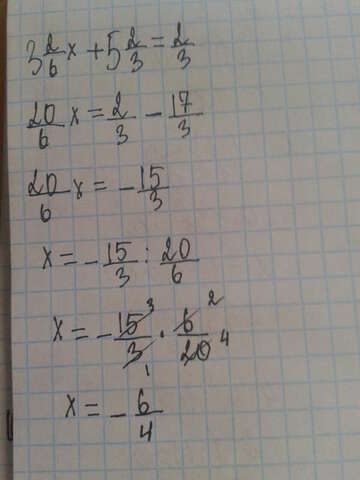 3 2/6 x + 5 2/3 = 2/3
20/6 x = 2/3 - 17/3
20/6 x = - 15/3
x = - 15/3 : 20/6
x = - 15 3/3 1 · 6 2/20 4
x = - 6/4